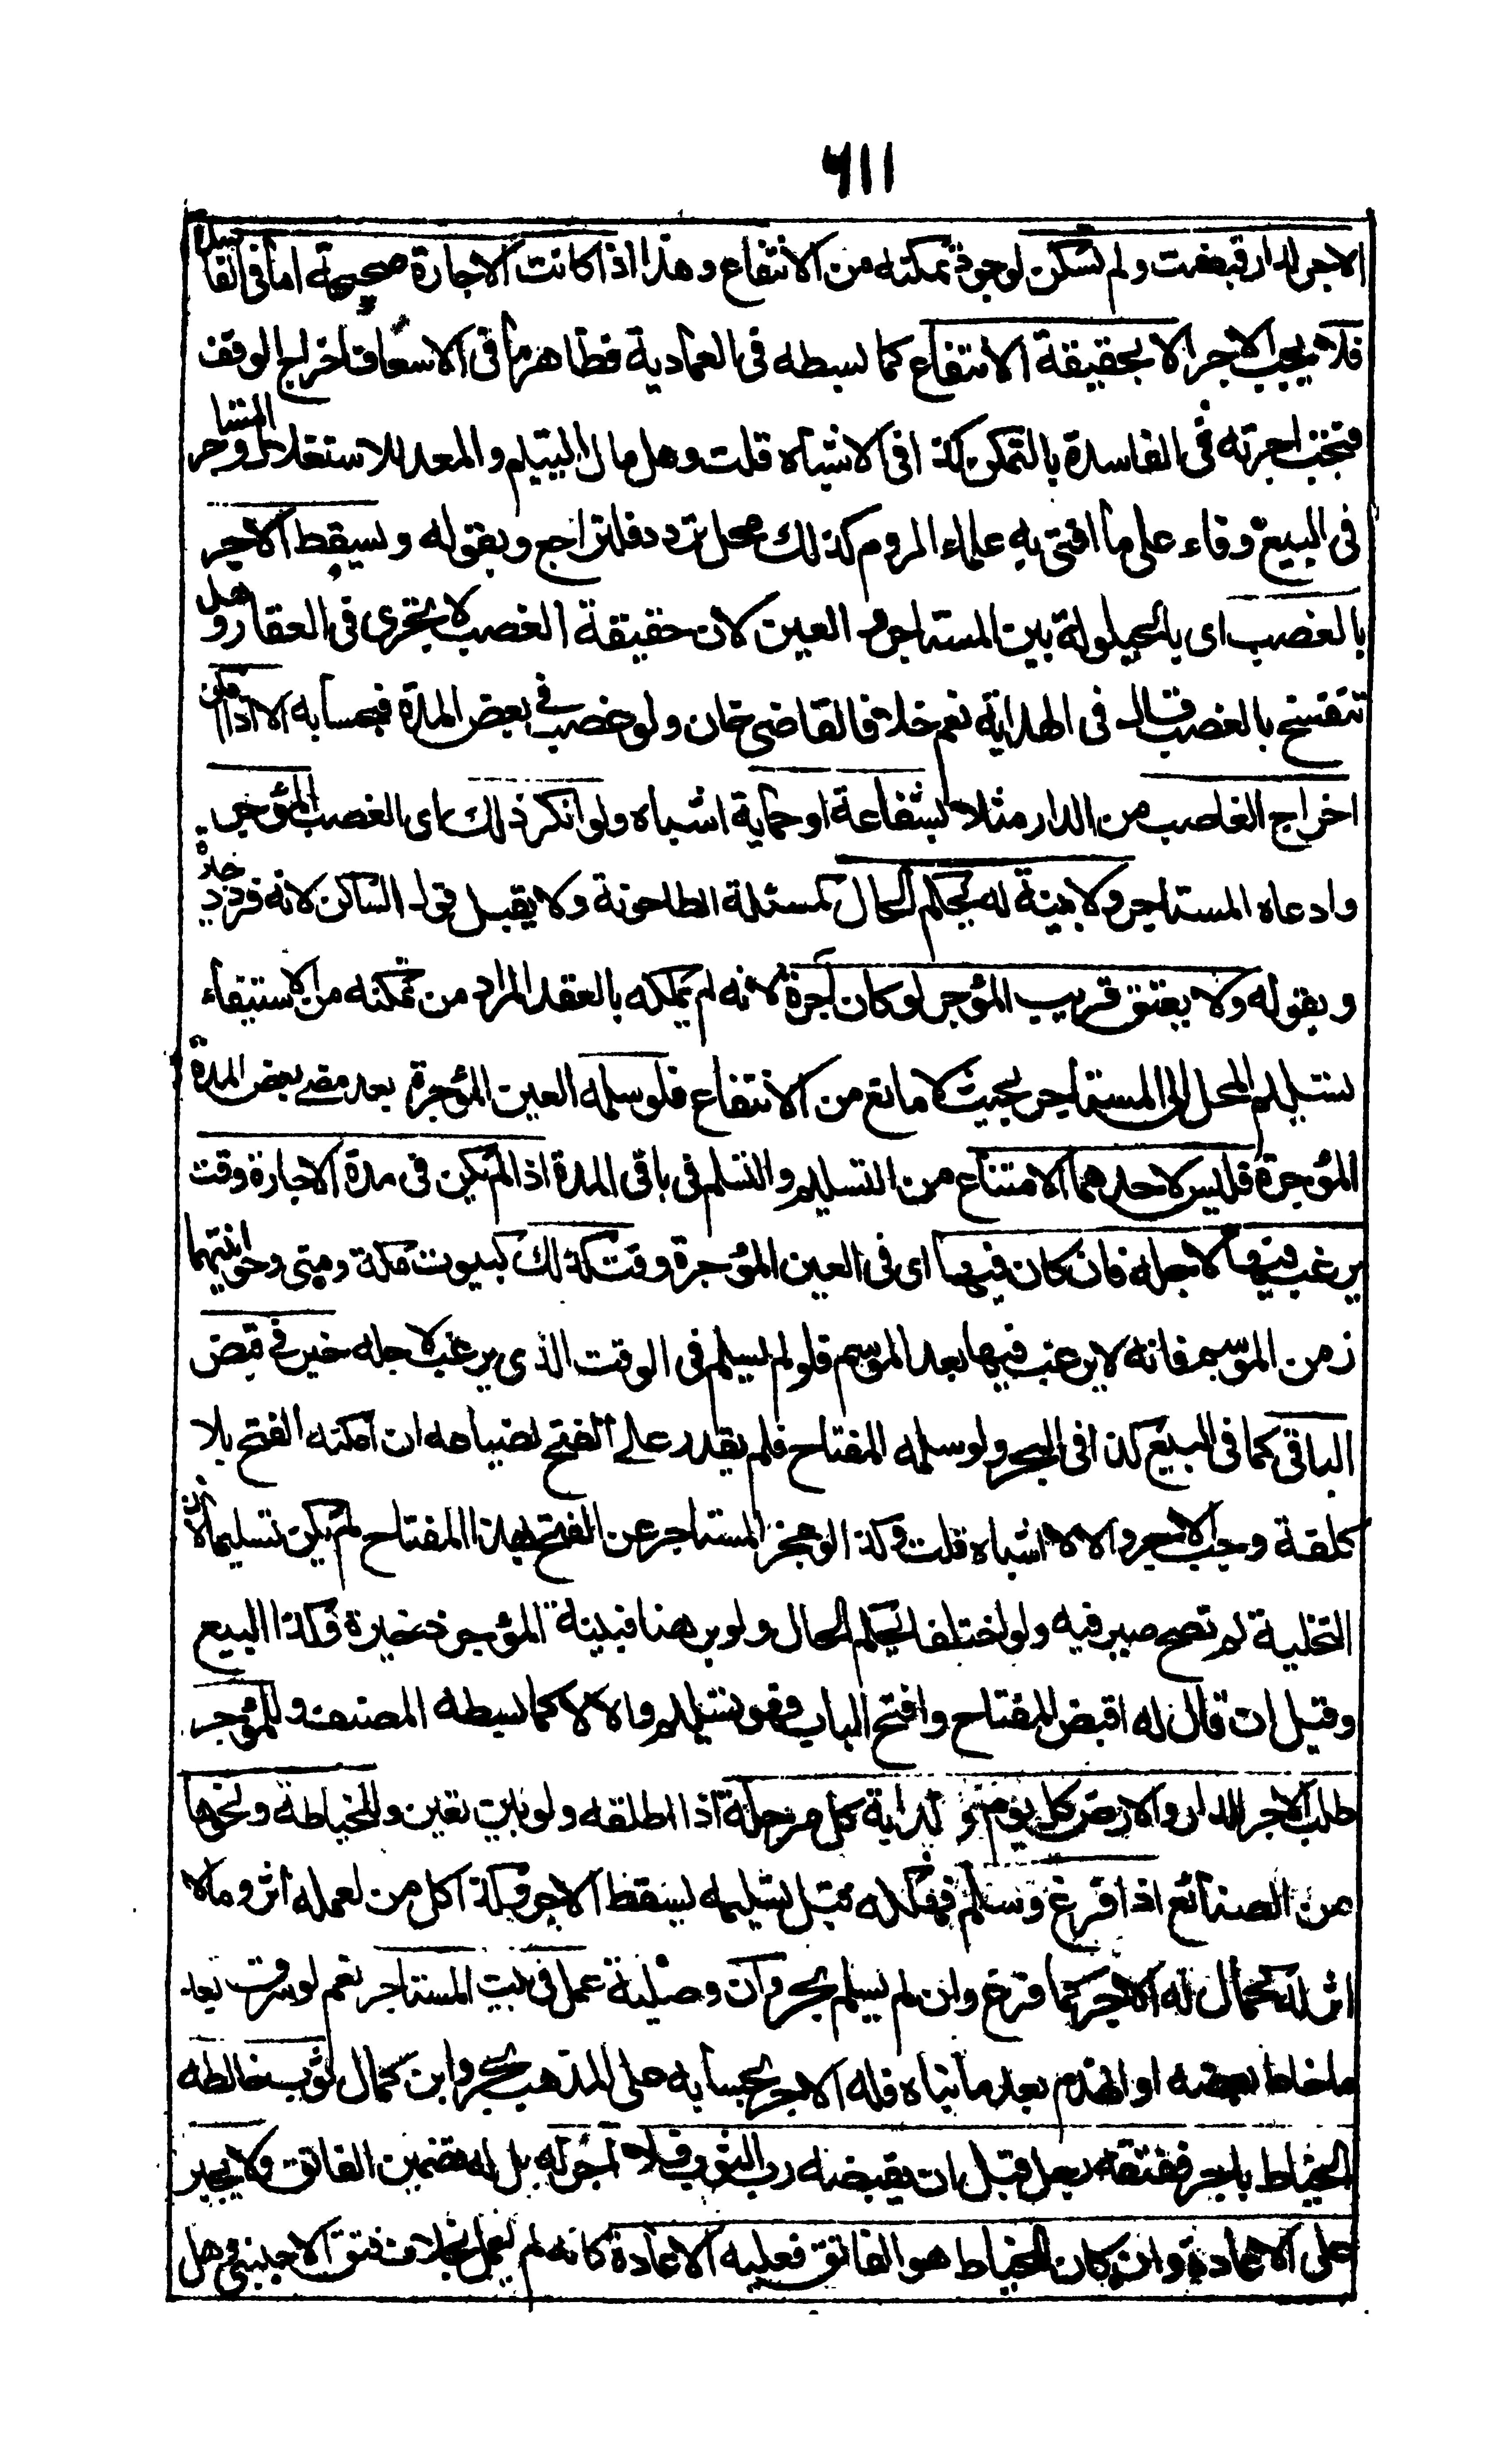 ٦١١
الاجر لدار قبضت ولم تسكن لوجود تمكنه من الانتفاع وهذا اذا كانت الاجارة صحيحة اما فى الفاسدة
فلا يجب الاجر الا بحقيقة الانتفاع كما بسطه فى العمادية فظاهر ما فى الاسعاف اخراج الوقف
فتجب اجرته فى الفاسدة بالتمكن كذا فى الاشباه قلت وهل مال اليتيم والمعد للاستغلال والمستاجر
فى البيع وفاء على ما افتى به علماء الروم كذلك محل تردد فليراجع وبقوله ويسقط الاجر
بالغصب اى بالحيلولة بين المستاجر والعين لان حقيقة الغصب لا تجرى فى العقار وهل
تنفسخ بالغصب قال فى الهداية نعم خلافا لقاضى خان ولو غصب فى بعض المدة فبحسابه الا اذا امكن
اخراج الغاصب من الدار مثلا بشفاعة او حماية اشباه ولو انكر ذلك اى الغصب المؤجر
وادعاه المستاجر ولا بينة له يحكم الحال كمسئلة الطاحونة ولا يقبل قول الساكن لانه فرد ذخيرة
وبقوله ولا يعتق قريب المؤجر لو كان اجرة لانه لم يملكه بالعقد المراد من تمكنه من الاستيفاء
تسليم المحل الى المستاجر بحيث لا مانع من الانتفاع فلو سلمه العين المؤجرة بعد مضى بعض المدة
المؤجرة فليس لاحدهما الامتناع من التسليم والتسلم فى باقى المدة اذا لم يكن فى مدة الاجارة وقت
يرغب فيها لاجله فان كان فيها اى فى العين المؤجرة وقت كذلك كبيوت مكة ومنى وحوانيتهما
زمن الموسم فانه لا يرغب فيها بعد الموسم فلو لم يسلم فى الوقت الذى يرغب لاجله خير فى قبض
الباقى كما فى البيع كذا فى البحر ولو سلمه المفتاح فلم يقدر على الفتح لضياعه ان امكنه الفتح بلا
كلفة وجب الاجر والا لا اشباه قلت وكذا لو عجز المستاجر عن الفتح بهذا المفتاح لم يكن تسليما لان
التخلية لم تصح صيرفيه ولو اختلفا يحكم الحال ولو برهنا فبينة المؤجر ذخيرة وكذا البيع
وقيل ان قال له اقبض المفتاح وافتح الباب فهو تسليم والا لا كما بسطه المصنف وللمؤجر
طلب الاجر للدار والارض كل يوم و للدابة كل مرحلة اذا اطلقه ولو بين تعين وللخياطة ونحوها
من الصنائع اذا فرغ وسلم فهلاكه قبل تسليمه يسقط الاجر وكذا كل من لعمله اثر وما لا
اثر له كحمال له الاجر كما فرغ وان لم يسلم بحر وان وصلية عمل فى بيت المستاجر نعم لو سرق بعد
ما خاط بعضه او انهدم بعد ما بناه فله الاجر بحسابه على المذهب بحر وابن كمال ثوب خاطه
الخياط باجر ففتقه رجل قبل ان يقبضه رب الثوب فلا اجر له بل له تضمين الفاتق ولا يجبر
على الاعادة وان كان الخياط هو الفاتق فعليه الاعادة كانه لم يعمل بخلاف فتق الاجنبى وهل